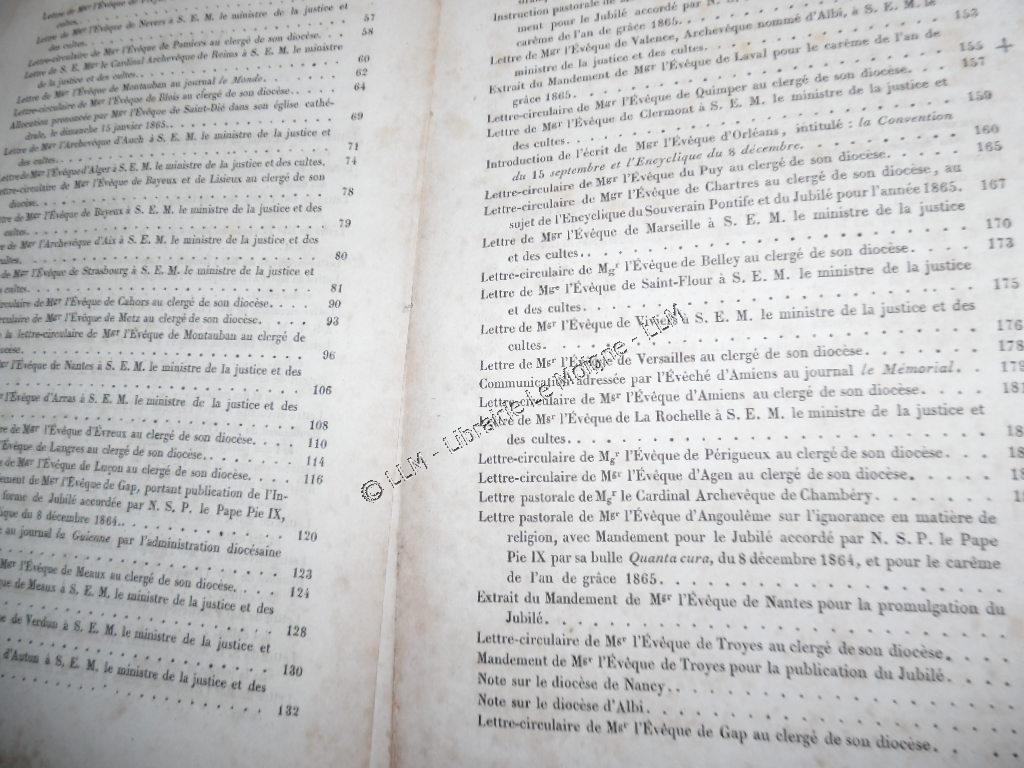 Lettre de Mgr l'Évêque de
Lettre de Mgr l'Évêque de Nevers à S. E. M. le ministre de la justice et
des cultes. 57
Lettre-circulaire de Mgr l'Évêque de Pamiers au clergé de son diocèse. 58
Lettre de S. E. Mgr le Cardinal Archevêque de Reims à S. E. M. le ministre
de la justice et des cultes. 60
Lettre de Mgr l'Évêque de Montauban au journal le Monde. 62
Lettre-circulaire de Mgr l'Évêque de Blois au clergé de son diocèse. 64
Allocution prononcée par Mgr l'Évêque de Saint-Dié dans son église cathé-
drale, le dimanche 15 janvier 1865. 69
Lettre de Mgr l'Archevêque d'Auch à S. E. M. le ministre de la justice et
des cultes. 71
Lettre de Mgr l'Évêque d'Alger à S. E. M. le ministre de la justice et des cultes. 74
ettre-circulaire de Mgr l'Évêque de Bayeux et de Lisieux au clergé de son
diocèse. 78
tre de Mgr l'Évêque de Bayeux à S. E. M. le ministre de la justice et des
cultes. 79
re de Mgr l'Archevêque d'Aix à S. E. M. le ministre de la justice et des
cultes. 80
de Mgr l'Évêque de Strasbourg à S. E. M. le ministre de la justice et
s cultes. 81
irculaire de Mgr l'Évêque de Cahors au clergé de son diocèse. 90
rculaire de Mgr l'Évêque de Metz au clergé de son diocèse. 93
à la lettre-circulaire de Mgr l'Évêque de Montauban au clergé de
ocèse. 96
gr l'Évêque de Nantes à S. E. M. le ministre de la justice et des
106
r l'Évêque d'Arras à S. E. M. le ministre de la justice et des
108
re de Mgr l'Évêque d'Évreux au clergé de son diocèse. 110
l'Évêque de Langres au clergé de son diocèse. 114
e de Mgr l'Évêque de Luçon au clergé de son diocèse. 116
ement de Mgr l'Évêque de Gap, portant publication de l'In-
forme de Jubilé accordée par N. S. P. le Pape Pie IX,
ique du 8 décembre 1864. 120
e au journal la Guienne par l'administration diocésaine
123
Mgr l'Évêque de Meaux au clergé de son diocèse. 124
que de Meaux à S. E. M. le ministre de la justice et des
128
ue de Verdun à S. E. M. le ministre de la justice et
130
d'Autun à S. E. M. le ministre de la justice et des
132
Instruction pastorale de M
ment pour le Jubilé accordé par N. S.
carême de l'an de grâce 1865.
Lettre de Mgr l'Évêque de Valence, Archevêque nommé d'Albi, à S. E. M. le
ministre de la justice et des cultes. 153
Extrait du Mandement de Mgr l'Évêque de Laval pour le carême de l'an de
grâce 1865. 155 +
Lettre-circulaire de Mgr l'Évêque de Quimper au clergé de son diocèse. 157
Lettre de Mgr l'Évêque de Clermont à S. E. M. le ministre de la justice et
des cultes. 159
Introduction de l'écrit de Mgr l'Évêque d'Orléans, intitulé : la Convention
du 15 septembre et l'Encyclique du 8 décembre. 160
Lettre-circulaire de Mgr l'Évêque du Puy au clergé de son diocèse. 165
Lettre-circulaire de Mgr l'Évêque de Chartres au clergé de son diocèse, au
sujet de l'Encyclique du Souverain Pontife et du Jubilé pour l'année 1865. 167
Lettre de Mgr l'Évêque de Marseille à S. E. M. le ministre de la justice
et des cultes. 170
Lettre-circulaire de Mgr l'Évêque de Belley au clergé de son diocèse. 173
Lettre de Mgr l'Évêque de Saint-Flour à S. E. M. le ministre de la justice
et des cultes. 175
Lettre de Mgr l'Évêque de Viviers à S. E. M. le ministre de la justice et des
cultes. 176
Lettre de Mgr l'Évêque de Versailles au clergé de son diocèse. 178
Communication adressée par l'Évêché d'Amiens au journal le Mémorial. 179
Lettre-circulaire de Mgr l'Évêque d'Amiens au clergé de son diocèse. 181
Lettre de Mgr l'Évêque de La Rochelle à S. E. M. le ministre de la justice et
des cultes. 18
Lettre-circulaire de Mgr l'Évêque de Périgueux au clergé de son diocèse. 18
Lettre-circulaire de Mgr l'Évêque d'Agen au clergé de son diocèse. 18
Lettre pastorale de Mgr le Cardinal Archevêque de Chambéry. 1
Lettre pastorale de Mgr l'Évêque d'Angoulême sur l'ignorance en matière de
religion, avec Mandement pour le Jubilé accordé par N. S. P. le Pape
Pie IX par sa bulle Quanta cura, du 8 décembre 1864, et pour le carême
de l'an de grâce 1865.
Extrait du Mandement de Mgr l'Évêque de Nantes pour la promulgation du
Jubilé.
Lettre-circulaire de Mgr l'Évêque de Troyes au clergé de son diocèse.
Mandement de Mgr l'Évêque de Troyes pour la publication du Jubilé.
Note sur le diocèse de Nancy.
Note sur le diocèse d'Albi.
Lettre-circulaire de Mgr l'Évêque de Gap au clergé de son diocèse.
© LLM - Librairie Le Moigne - LLM